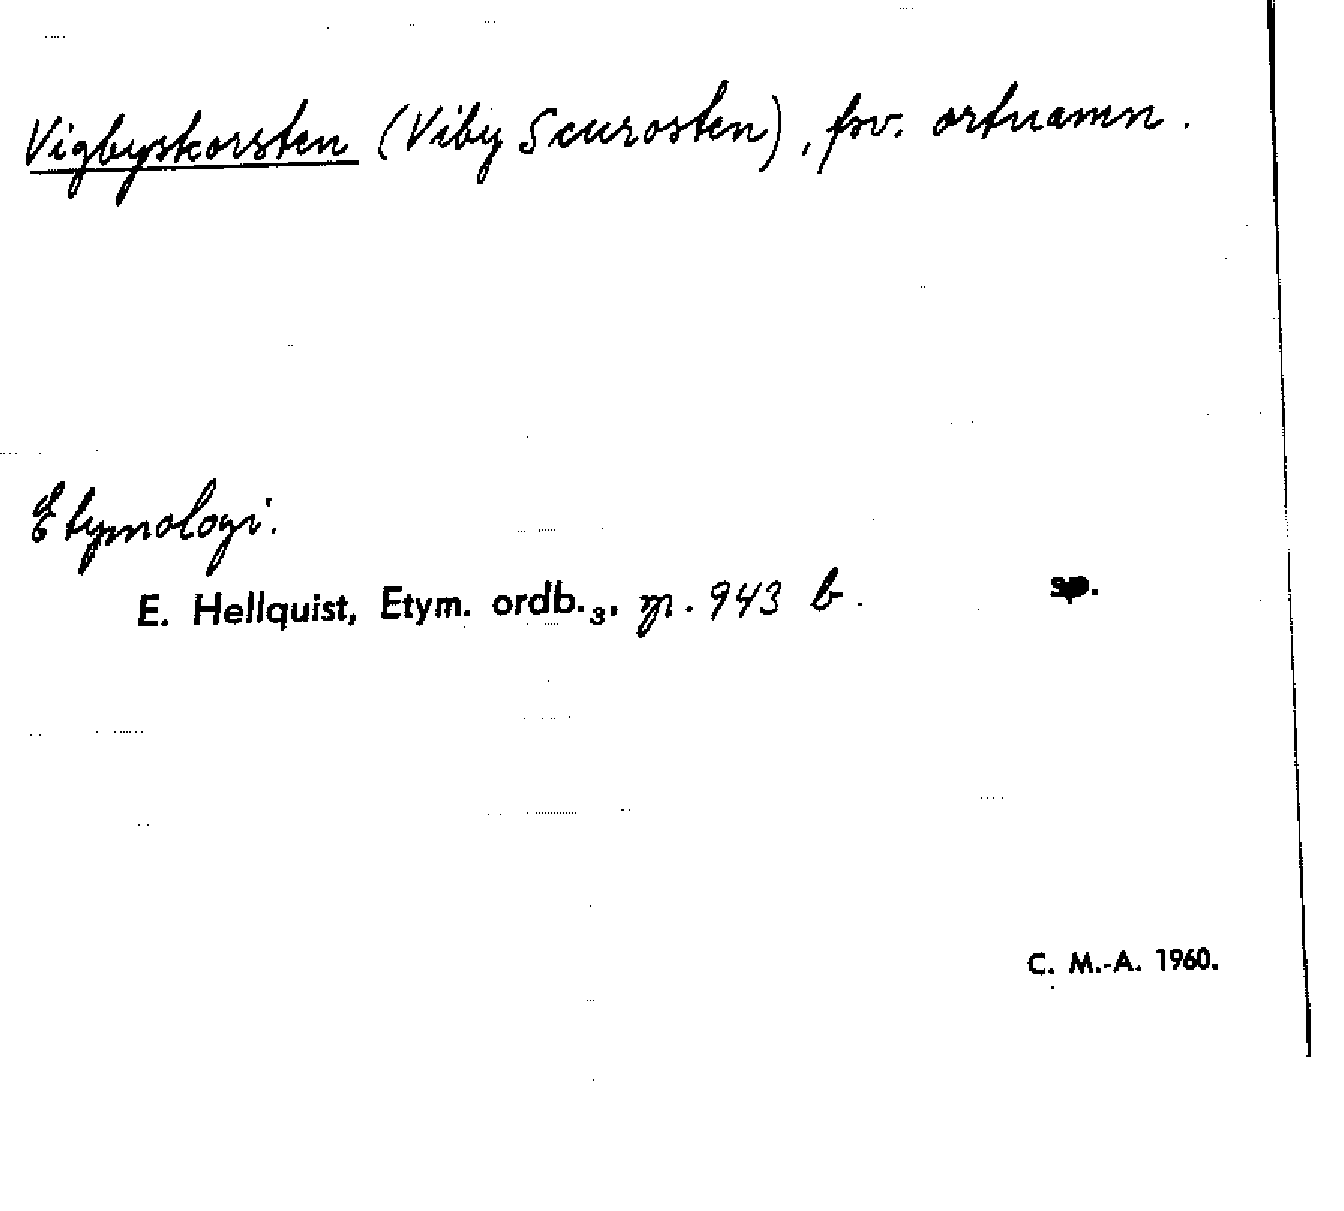 Vigbyskorsten (Viby Scurosten), fsv. ortnamn.
Etymologi.
E. Hellquist, Etym. ordb.₃, p. 943 b. sp.
C. M.-A. 1960.